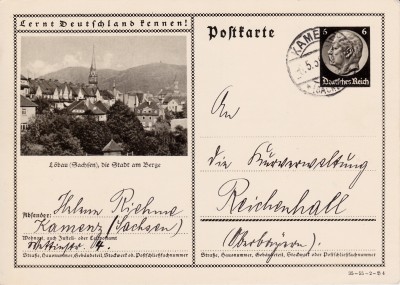 Lernt Deutschland kennen!
Löbau (Sachsen), die Stadt am Berge
Absender: Helene
Kamenz (Sachsen)
Wohnort, auch Zustell- oder Leitpostamt
Straße, Hausnummer, Gebäudeteil, Stockwerk od. Postschließfachnummer
Postkarte
5 6
Deutsches Reich
KAMENZ
An
die Kurverwaltung
Reichenhall
(Oberbayern).
Straße, Hausnummer, Gebäudeteil, Stockwerk oder Postschließfachnummer